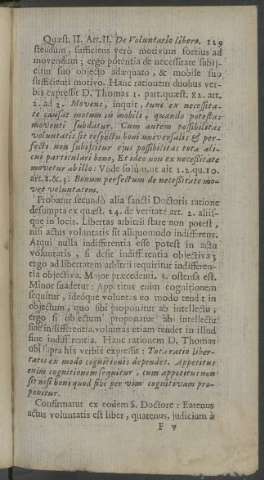 Quæst. II. Art. II. De Voluntario libero. 129
stendum, sufficiens verò motivum fortius ad
movendum; ergo potentia de necessitate subij-
citur suo objecto adæquato, & mobile suo
sufficienti motivo. Hanc rationem duobus ver-
bis expressit D. Thomas 1. part. quæst. 82. art.
2. ad 2. Movens, inquit, tunc ex necessita-
te causat motum in mobili, quando potestas
moventi subdatur. Cum autem possibilitas
voluntatis sit respectu boni universalis & per-
fecti non subjicitur ejus possibilitas tota ali-
cui particulari bono, & ideo non ex necessitate
movetur ab illo: Vnde 1.2. qu. 10.
art. 2. &c. Bonum perfectum de necessitate mo-
vet voluntatem.
Probatur secundò alia sancti Doctoris ratione
desumpta ex quæst. 24. de veritate art. 2. aliis-
que in locis. Libertas arbitrii stare non potest,
nisi actus voluntatis sit aliquomodo indifferens.
Atqui nulla indifferentia esse potest in actu
voluntatis, si desit indifferentia objectiva;
ergo ad libertatem arbitrii requiritur indifferen-
tia objectiva. Major præcedenti. ostensa est.
Minor suadetur: Appetitus enim cognitionem
sequitur, ideóque voluntas eo modo tendit in
objectum, quo sibi proponitur ab intellectu;
ergo si objectum proponatur ab intellectu
sine indifferentia, voluntas etiam tendet in illud
sine indifferentia. Hanc rationem D. Thomas
ubi suprà his verbis expressit: Tota ratio liber-
tatis ex modo cognitionis dependet. Appetitus
enim cognitionem sequitur, cum appetitus non
sit nisi boni quod sibi per vim cognitivam pro-
ponitur.
Confirmatur ex eodem S. Doctore: Eatenus
actus voluntatis est liber, quatenus judicium à
F v